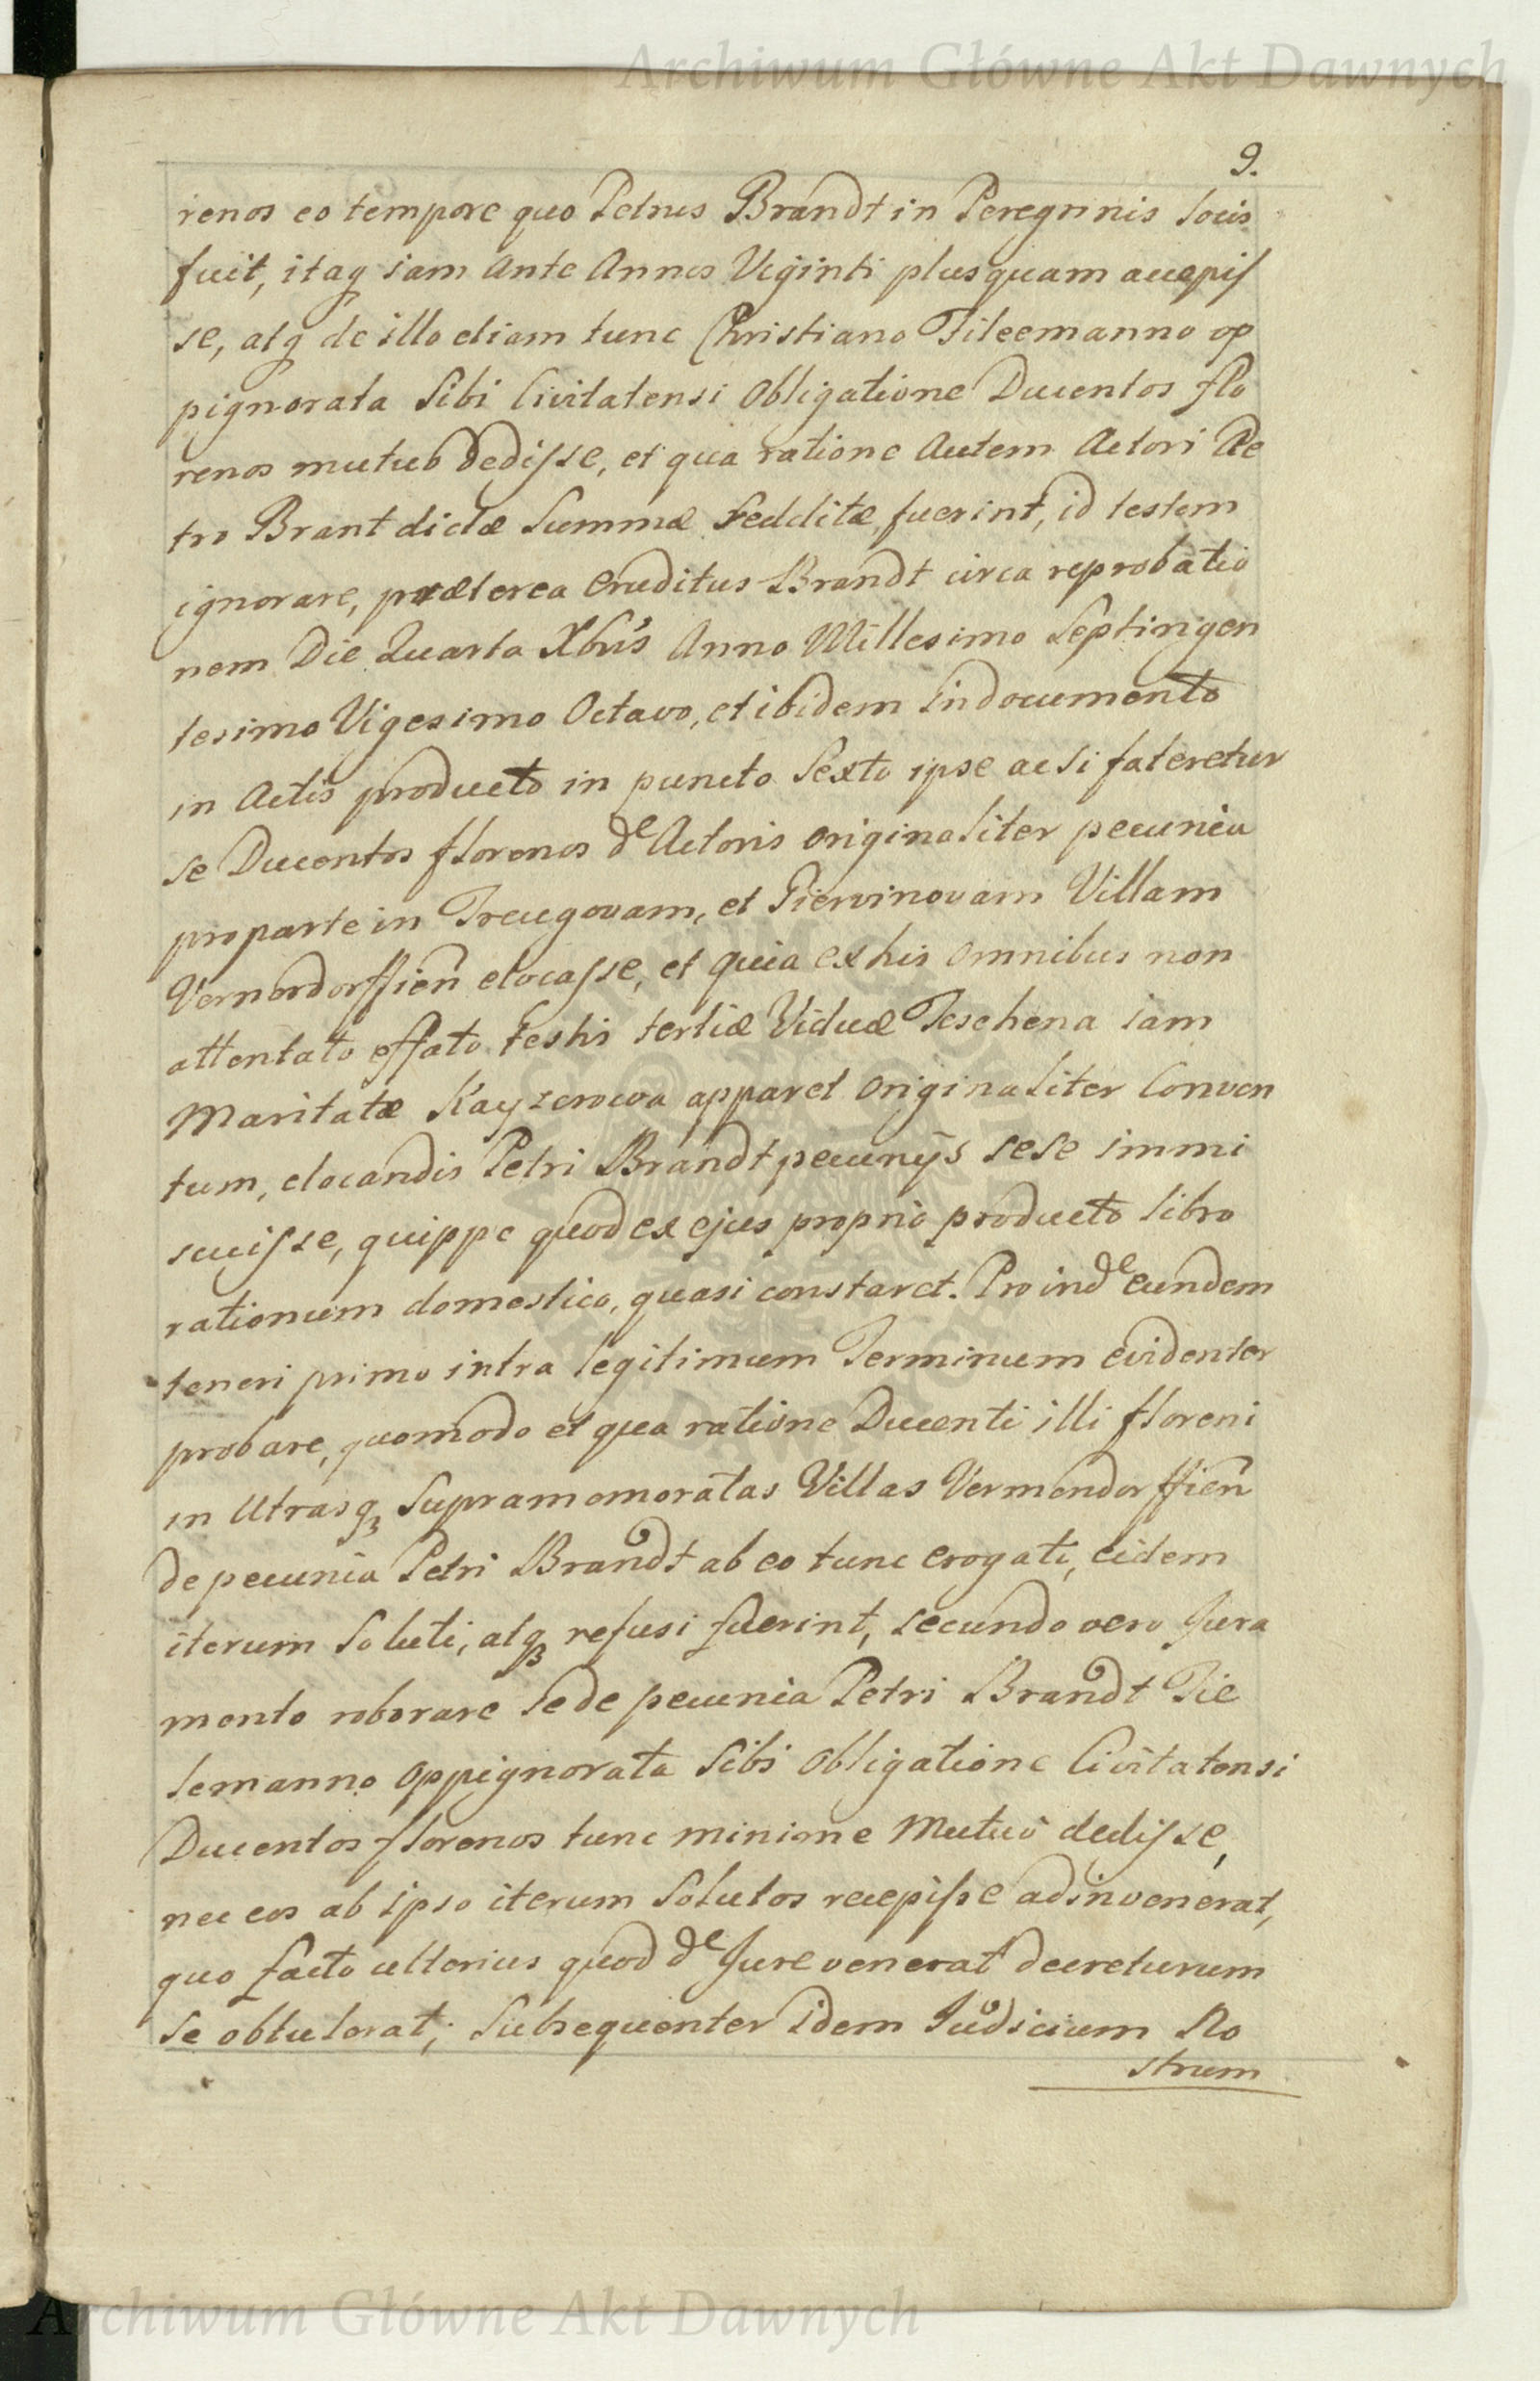 Archiwum Główne Akt Dawnych
9.
renos eo tempore quo Petrus Brandt in Peregrinis locis
fuit, itaq iam Ante Annos Viginti plusquam accepis
se, atq de illo etiam tunc Christiano Tileemanno op
pignorata Sibi Civitatensi Obligatione Ducentos flo
renos mutuo Dedisse, et qua ratione Autem Actori Pe
tro Brant dictæ Summæ redditæ fuerint, id testem
ignorare, præterea Eruditus Brandt circa reprobatio
nem Die Quarta Xbris Anno Millesimo Septingen
tesimo Vigesimo Octavo, et ibidem in documento
in Actis producto in puncto Sexto ipse ac si fateretur
se Ducentos florenos de Actoris originaliter pecunia
pro parte in Treugovam, et Piervinovam Villam
Vernordorffien elocasse, et quia ex his omnibus non
attentato effato testis tertiæ Viduæ Teschena iam
Maritatæ Kayzerowa apparet originaliter Conven
tum, elocandis Petri Brandt pecunijs sese immi
scuisse, quippe quod ex ejus proprio producto libro
rationum domestico, quasi constaret. Pro inde eundem
teneri primo intra legitimum Terminum evidenter
probare, quomodo et qua ratione Ducenti illi floreni
in Utrasq Supramemoratas Villas Vermendorffien
de pecunia Petri Brandt ab eo tunc erogati, eidem
iterum Soluti, atq refusi fuerint, secundo vero Jura
mento roborare se de pecunia Petri Brandt Tie
lemanno oppignorata Sibi Obligatione Civitatensi
Ducentos florenos tunc minime Mutuo dedisse,
nec eos ab ipso iterum Solutos recepisse adinvenerat,
quo facto ulterius quod de Jure venerat decreturum
se obtulerat; Subsequenter idem Judicium No
strum
Archiwum Główne Akt Dawnych